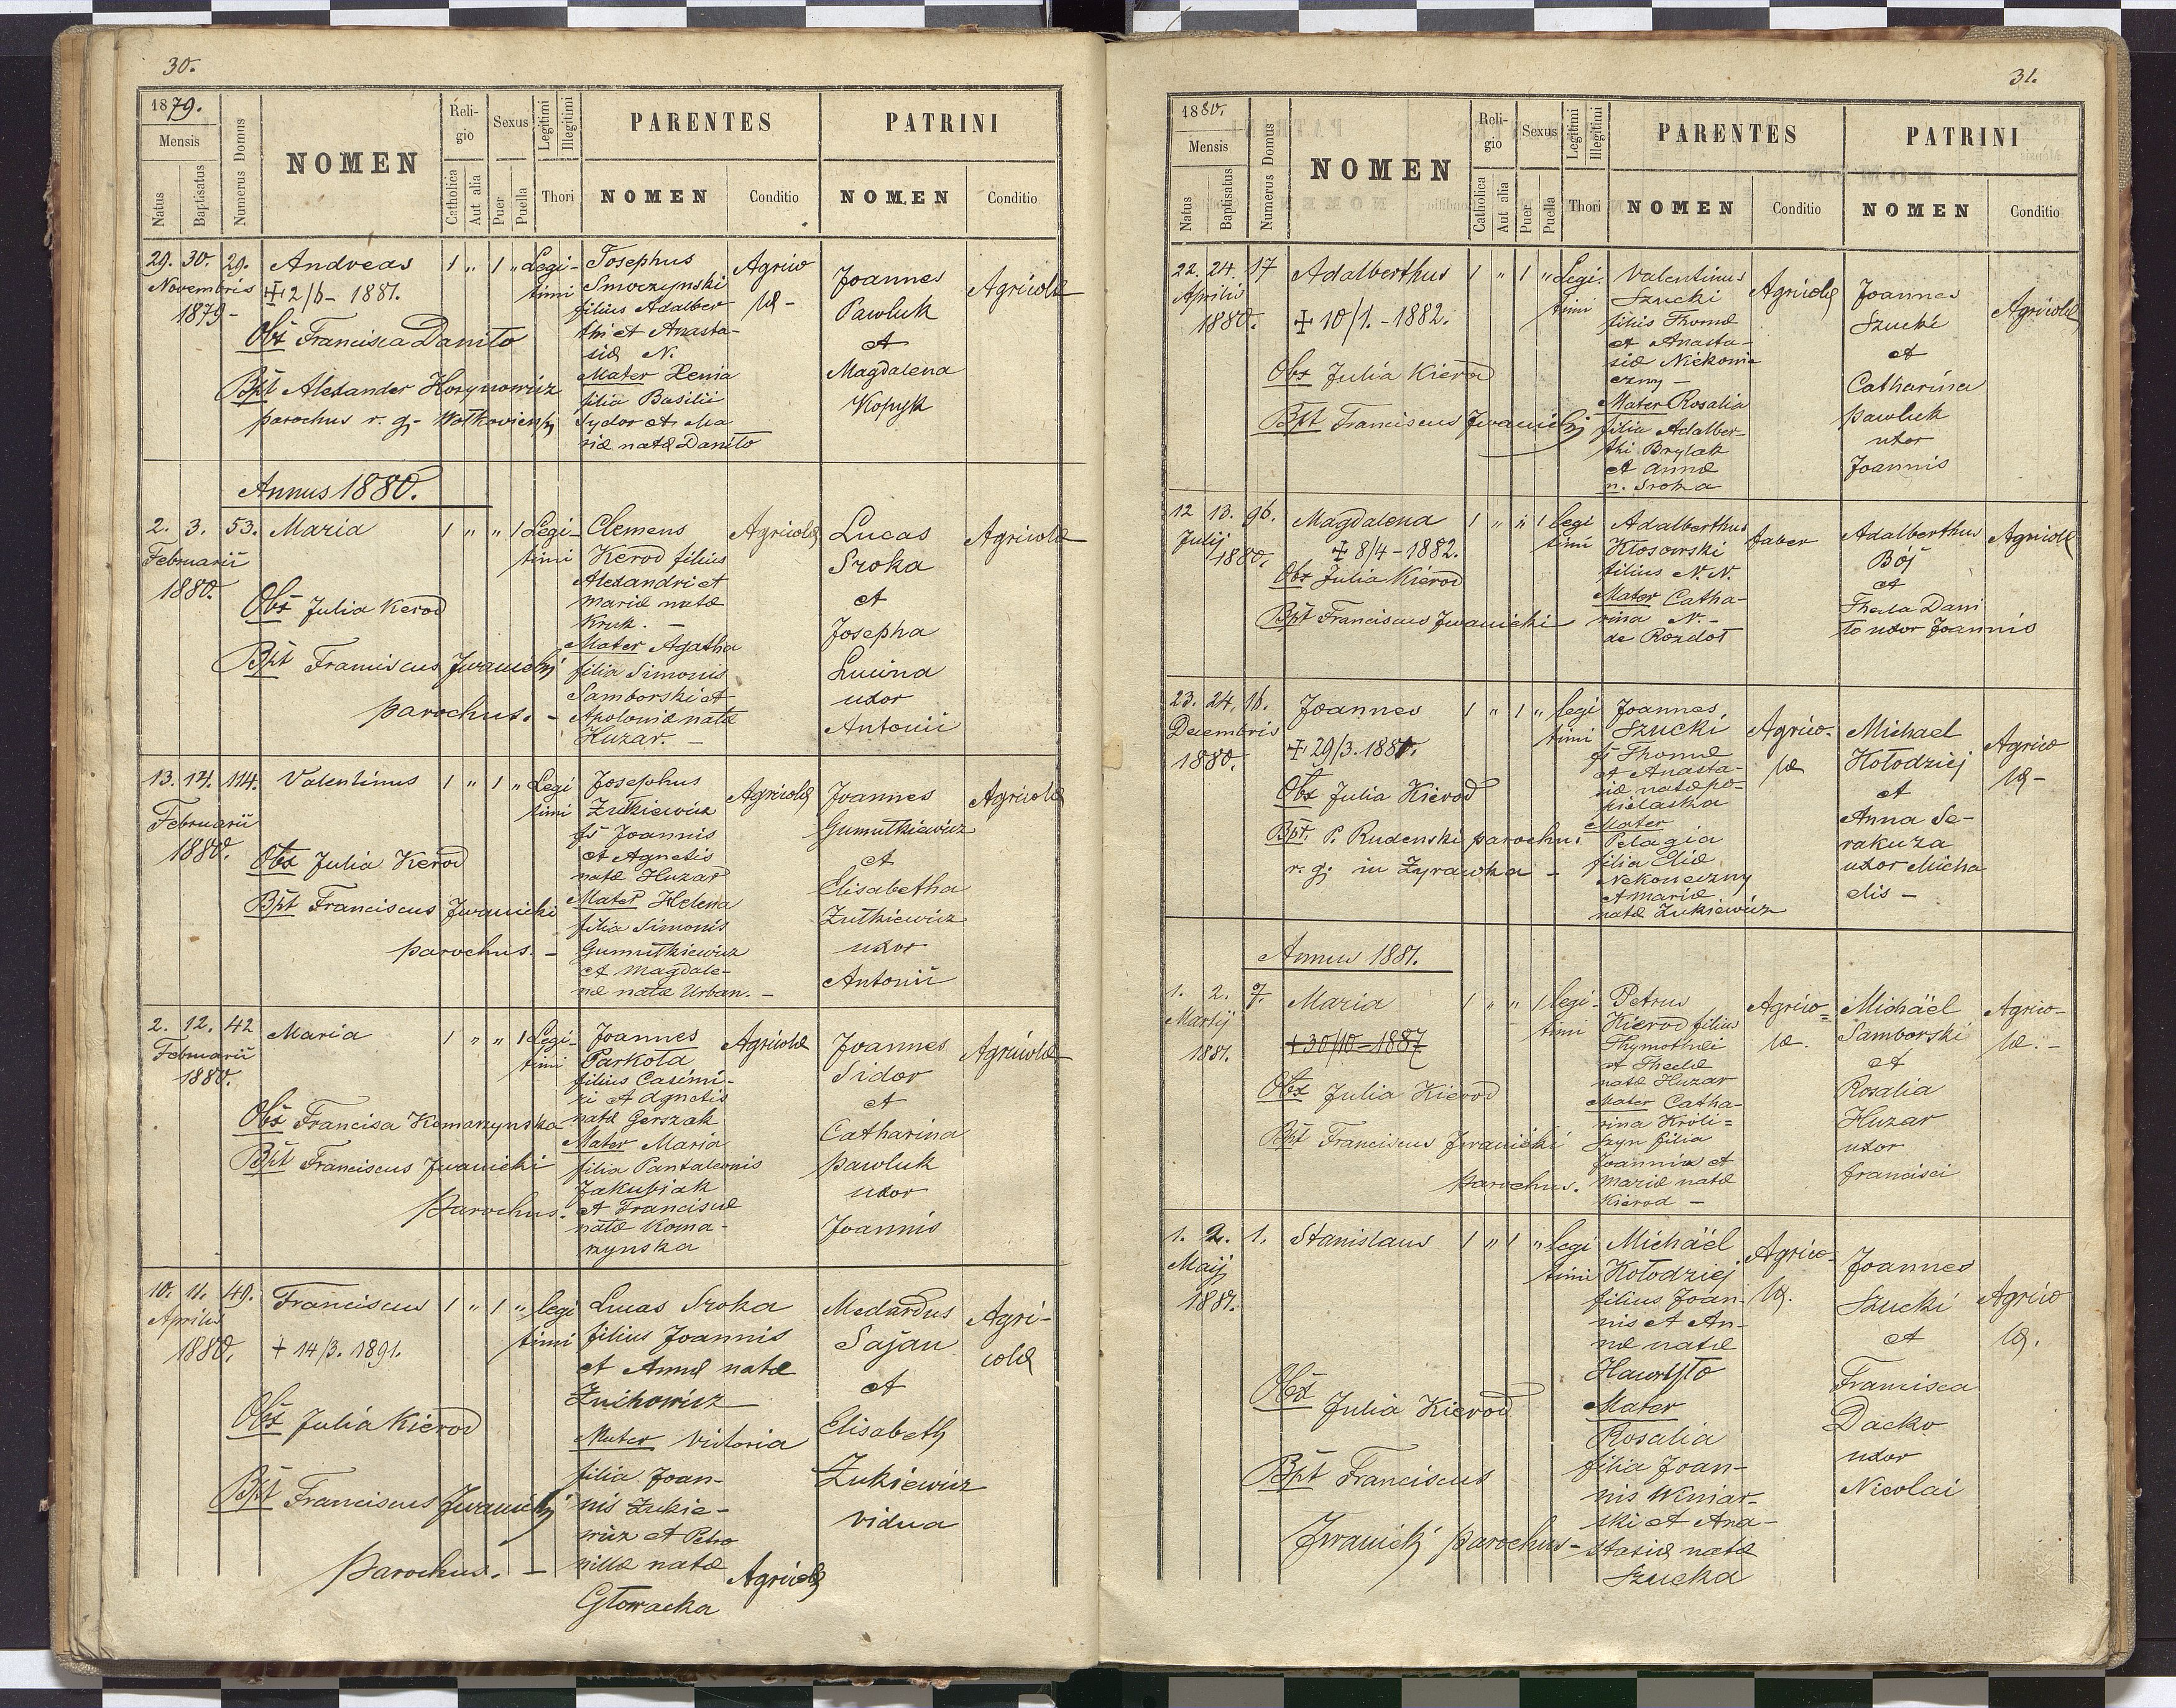 30.
1879.
Mensis
Natus
Baptisatus
Numerus Domus
NOMEN
Reli-
gio
Catholica
Aut alia
Sexus
Puer
Puella
Legitimi
Illegitimi
Thori
PARENTES
NOMEN
Conditio
PATRINI
NOMEN
Conditio
29. 30. 29.
Novembris
1879 -
Andreas
+ 2/6 - 1881.
Obs Francisca Daniło
Bpt Alexander
parochus r. g.
1 „ 1 „ Legi-
timi
Josephus
Smoczynski
filius Adalber
thi et Anasta-
siæ N.
Mater Xenia
filia Basilii
Sydor et Ma
riæ natæ Daniło
Agrico
læ -
Joannes
Pawluk
et
Magdalena
Kopyk
Agricolæ
Annus 1880.
2. 3. 53.
Februarii
1880.
Maria
Obs Julia Kerod
Bpt Franciscus Jwanicki
parochus. -
1 „ „ 1 Legi-
timi
Clemens
Kerod filius
Alexandri et
Mariæ natæ
Kruk. -
Mater Agatha
filia Simonis
Samborski et
Apoloniæ natæ
Huzar. -
Agricolæ
Lucas
Sroka
et
Josepha
Lucina
uxor
Antonii
Agricolæ
13. 14. 114.
Februarii
1880.
Valentinus
Obs Julia Kerod
Bpt Franciscus Jwanicki
parochus. -
1 „ 1 „ Legi
timi
Josephus
Zutkiewicz
fs Joannis
et Agnetis
natæ Huzar
Mater Helena
filia Simonis
Gumutkiewicz
et Magdale-
næ natæ Urban. -
Agricolæ
Joannes
Gumutkiewicz
et
Elisabetha
Zutkiewicz
uxor
Antonii
Agricolæ
2. 12. 42
Februarii
1880.
Maria
Obs Francisca Komarzynska
Bpt Franciscus Jwanicki
Parochus.
1 „ „ 1 Legi-
timi
Joannes
Parkota
filius Casimi-
ri et Agnetis
natæ Gerszak
Mater Maria
filia Pantaleonis
Jakubiak
et Franciscæ
natæ Koma-
rzynska
Agricolæ
Joannes
Sidor
et
Catharina
Pawluk
uxor
Joannis
Agricolæ
10. 11. 49.
Aprilis
1880.
Franciscus
+ 14/3. 1891.
Obs Julia Kierod
Bpt Franciscus Jwanicki
Parochus. -
1 „ 1 „ legi
timi
Lucas Sroka
filius Joannis
et Annæ natæ
Zuchowicz
Mater Victoria
filia Joan-
nis Zukie-
wicz et Petro
nillæ natæ
Głowacka
Agricolæ
Medardus
Sajan
et
Elisabeth
Zukiewicz
vidua
Agri-
colæ
31.
1880.
Mensis
Natus
Baptisatus
Numerus Domus
NOMEN
Reli-
gio
Catholica
Aut alia
Sexus
Puer
Puella
Legitimi
Illegitimi
Thori
PARENTES
NOMEN
Conditio
PATRINI
NOMEN
Conditio
22. 24. 17
Aprilis
1880.
Adalberthus
+ 10/1. - 1882.
Obs Julia Kierod
Bpt Franciscus Jwanicki
1 „ 1 „ Legi.
timi
Valentinus
Szucki
filius Thomæ
et Anasta-
siæ Niekonie
czny -
Mater Rosalia
filia Adalber-
thi Brylak
et Annæ
n. Sroka
Agricolæ
Joannes
Szucki
et
Catharina
Pawluk
uxor
Joannis
Agricolæ
12 13. 96.
Julij
1880.
Magdalena
+ 8/4 - 1882.
Obs Julia Kierod
Bpt Franciscus Jwanicki
1 „ „ 1 legi
timi
Adalberthus
Kłosowski
filius N. N.
Mater Catha-
rina N. -
de Rozdoł
faber
Adalberthus
Bój
et
Thecla Dani
ło uxor Joannis
Agricolæ
23. 24. 16.
Decembris
1880.
Joannes
+ 29/3. 1881.
Obs Julia Kierod
Bpt. P. Rudenski parochus
r. g. in Zyrawka -
1 „ 1 „ legi
timi
Joannes
Szucki
fs Thomæ
et Anasta-
siæ natæ Po-
pielaska
Mater
Pelagia
filia Eliæ
Nekoneczny
et Mariæ
natæ Zukiewicz
Agrico-
læ
Michael
Kołodziej
et
Anna Se-
rakuza
uxor Micha
elis -
Agrico
læ -
Annus 1881.
1. 2. 7.
Martij
1881.
Maria
+ 30/10 - 1887
Obs Julia Kierod
Bpt Franciscus Jwanicki
parochus.
1 „ „ 1 legi-
timi
Petrus
Kierod filius
Thymothei
et Theclæ
natæ Huzar
Mater Catha-
rina Króli=
szyn filia
Joannis et
Mariæ natæ
Kierod -
Agrico=
læ.
Michäel
Samborski
et
Rosalia
Huzar
uxor
Francisci
Agrico-
læ. -
1. 2. 1.
Maij
1881.
Stanislaus
Obs
Julia Kierod
Bpt Franciscus
Jwanicki parochus -
1 „ 1 „ legi
timi
Michäel
Kołodziej
filius Joan-
nis et An-
næ natæ
Hawryło
Mater
Rosalia
filia Joan-
nis Winiar-
ski et Ana-
stasiæ natæ
Szucka
Agrico-
læ.
Joannes
Szucki
et
Francisca
Dacko
uxor
Nicolai
Agrico
læ.